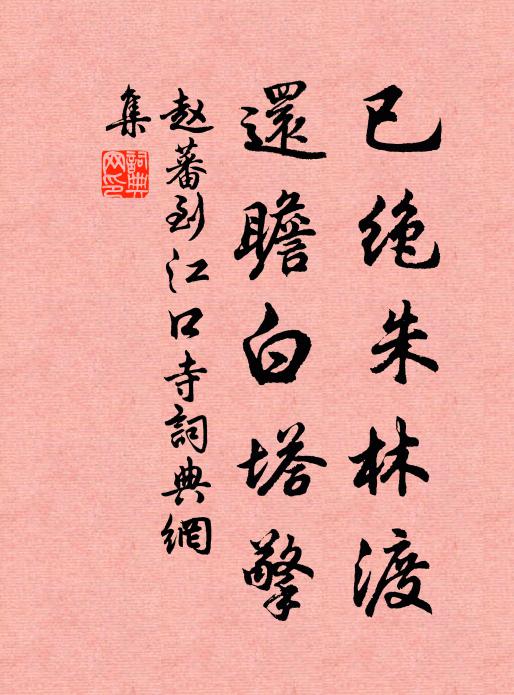 已绝朱林渡
還瞻白塔擎
赵蕃到江口寺詞典網
集
詞典
网印